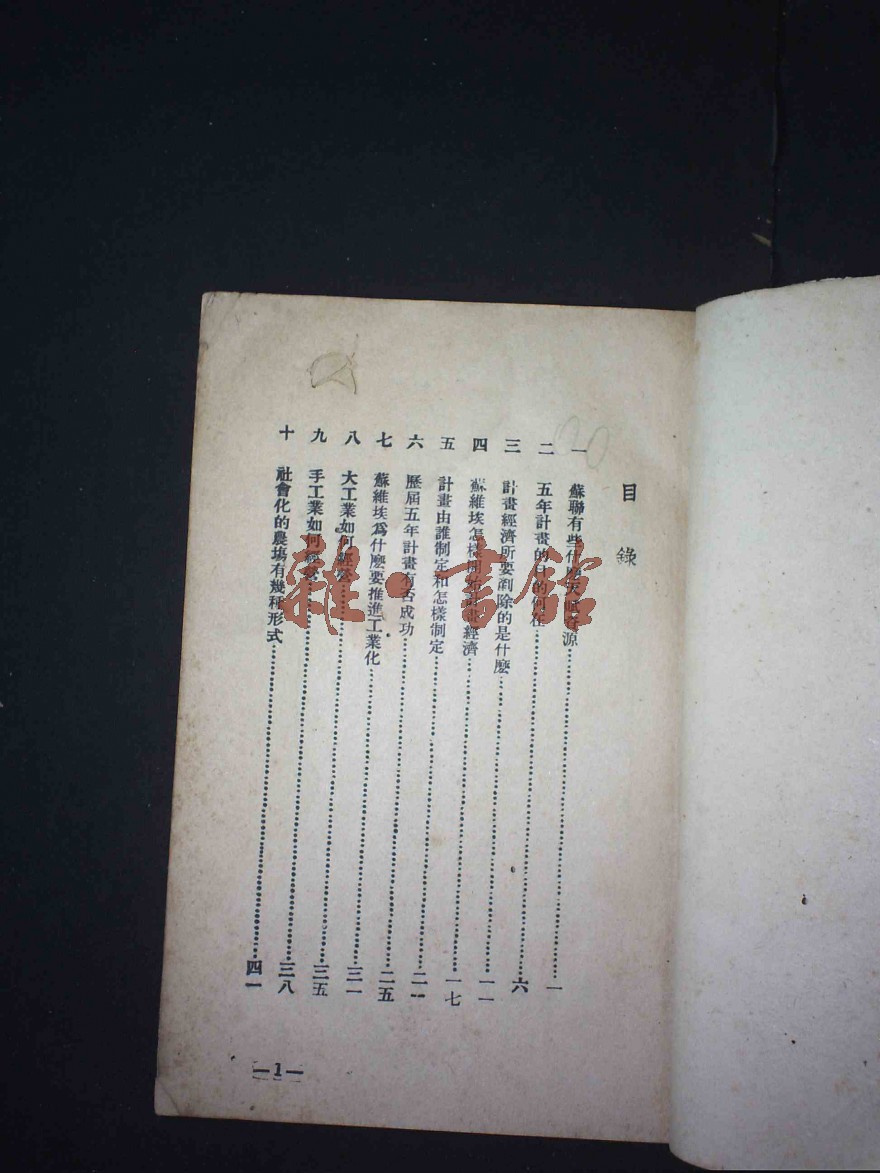 目錄
一 蘇聯有些什麼天賦資源……一
二 五年計畫的目的何在……六
三 計畫經濟所要剷除的是什麼……一一
四 蘇維埃怎樣開始計畫經濟……一七
五 計畫由誰制定和怎樣制定……二一
六 歷屆五年計畫有否成功……二五
七 蘇維埃為什麼要推進工業化……三一
八 大工業如何經營……三五
九 手工業如何經營……三八
十 社會化的農場有幾種形式……四一
—1—
雜·書館